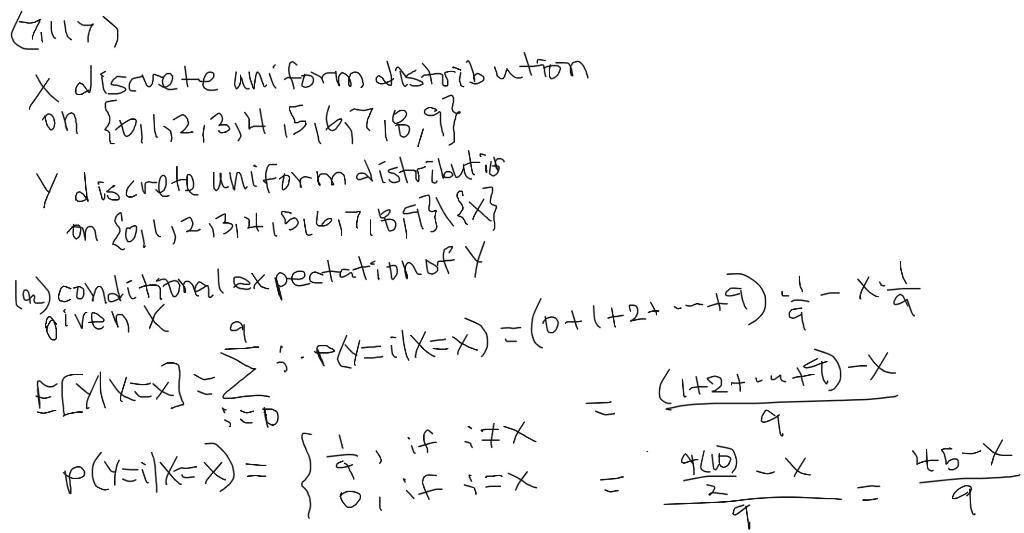 (7.117)
X discrete uniform distribution
on {0,1,2,3,4,5,6,7,8,9}
Y discrete uniform distribution
on {0,1,2,3,4,5,6,7,8,9}\{X}
(a) conditional expectation of Y
given X
E[Y|X=x] = \sum_{i=0}^{9} i · P(Y=i|X=x) = (0+1+2+...+9) · \frac{1}{9} - x · \frac{1}{9}
= \frac{(1+2+...+9)-x}{9}
p(Y=i|X=x) = { \frac{1}{9}, if i≠x
0, if i=x
= \frac{\frac{9(10)}{2} - x}{9} = \frac{45-x}{9}